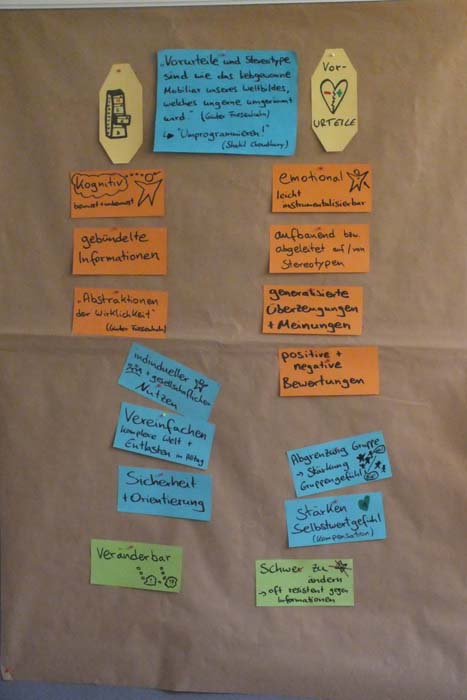 „Vorurteile und Stereotype
sind wie das liebgewonne
Mobiliar unseres Weltbildes,
welches ungerne umgeräumt
wird"
↳ "Umprogrammieren!"
(Shakil Choudhury)
Vor-
URTEILE
Kognitiv
bewusst + unbewusst
gebündelte
Informationen
„Abstraktionen
der Wirklichkeit"
emotional
leicht
instrumentalisierbar
aufbauend bzw.
abgeleitet auf/von
Stereotypen
generalisierte
Überzeugungen
+ Meinungen
positive +
negative
Bewertungen
individueller
+ gesellschaftlicher
Nutzen
Vereinfachen
komplexe Welt +
Entlasten im Alltag
Sicherheit
+ Orientierung
Abgrenzung Gruppe
→ Stärkung
Gruppengefühl
Stärken
Selbstwertgefühl
(Kompensation)
Veränderbar
Schwer zu
ändern
→ oft resistent gegen
Informationen